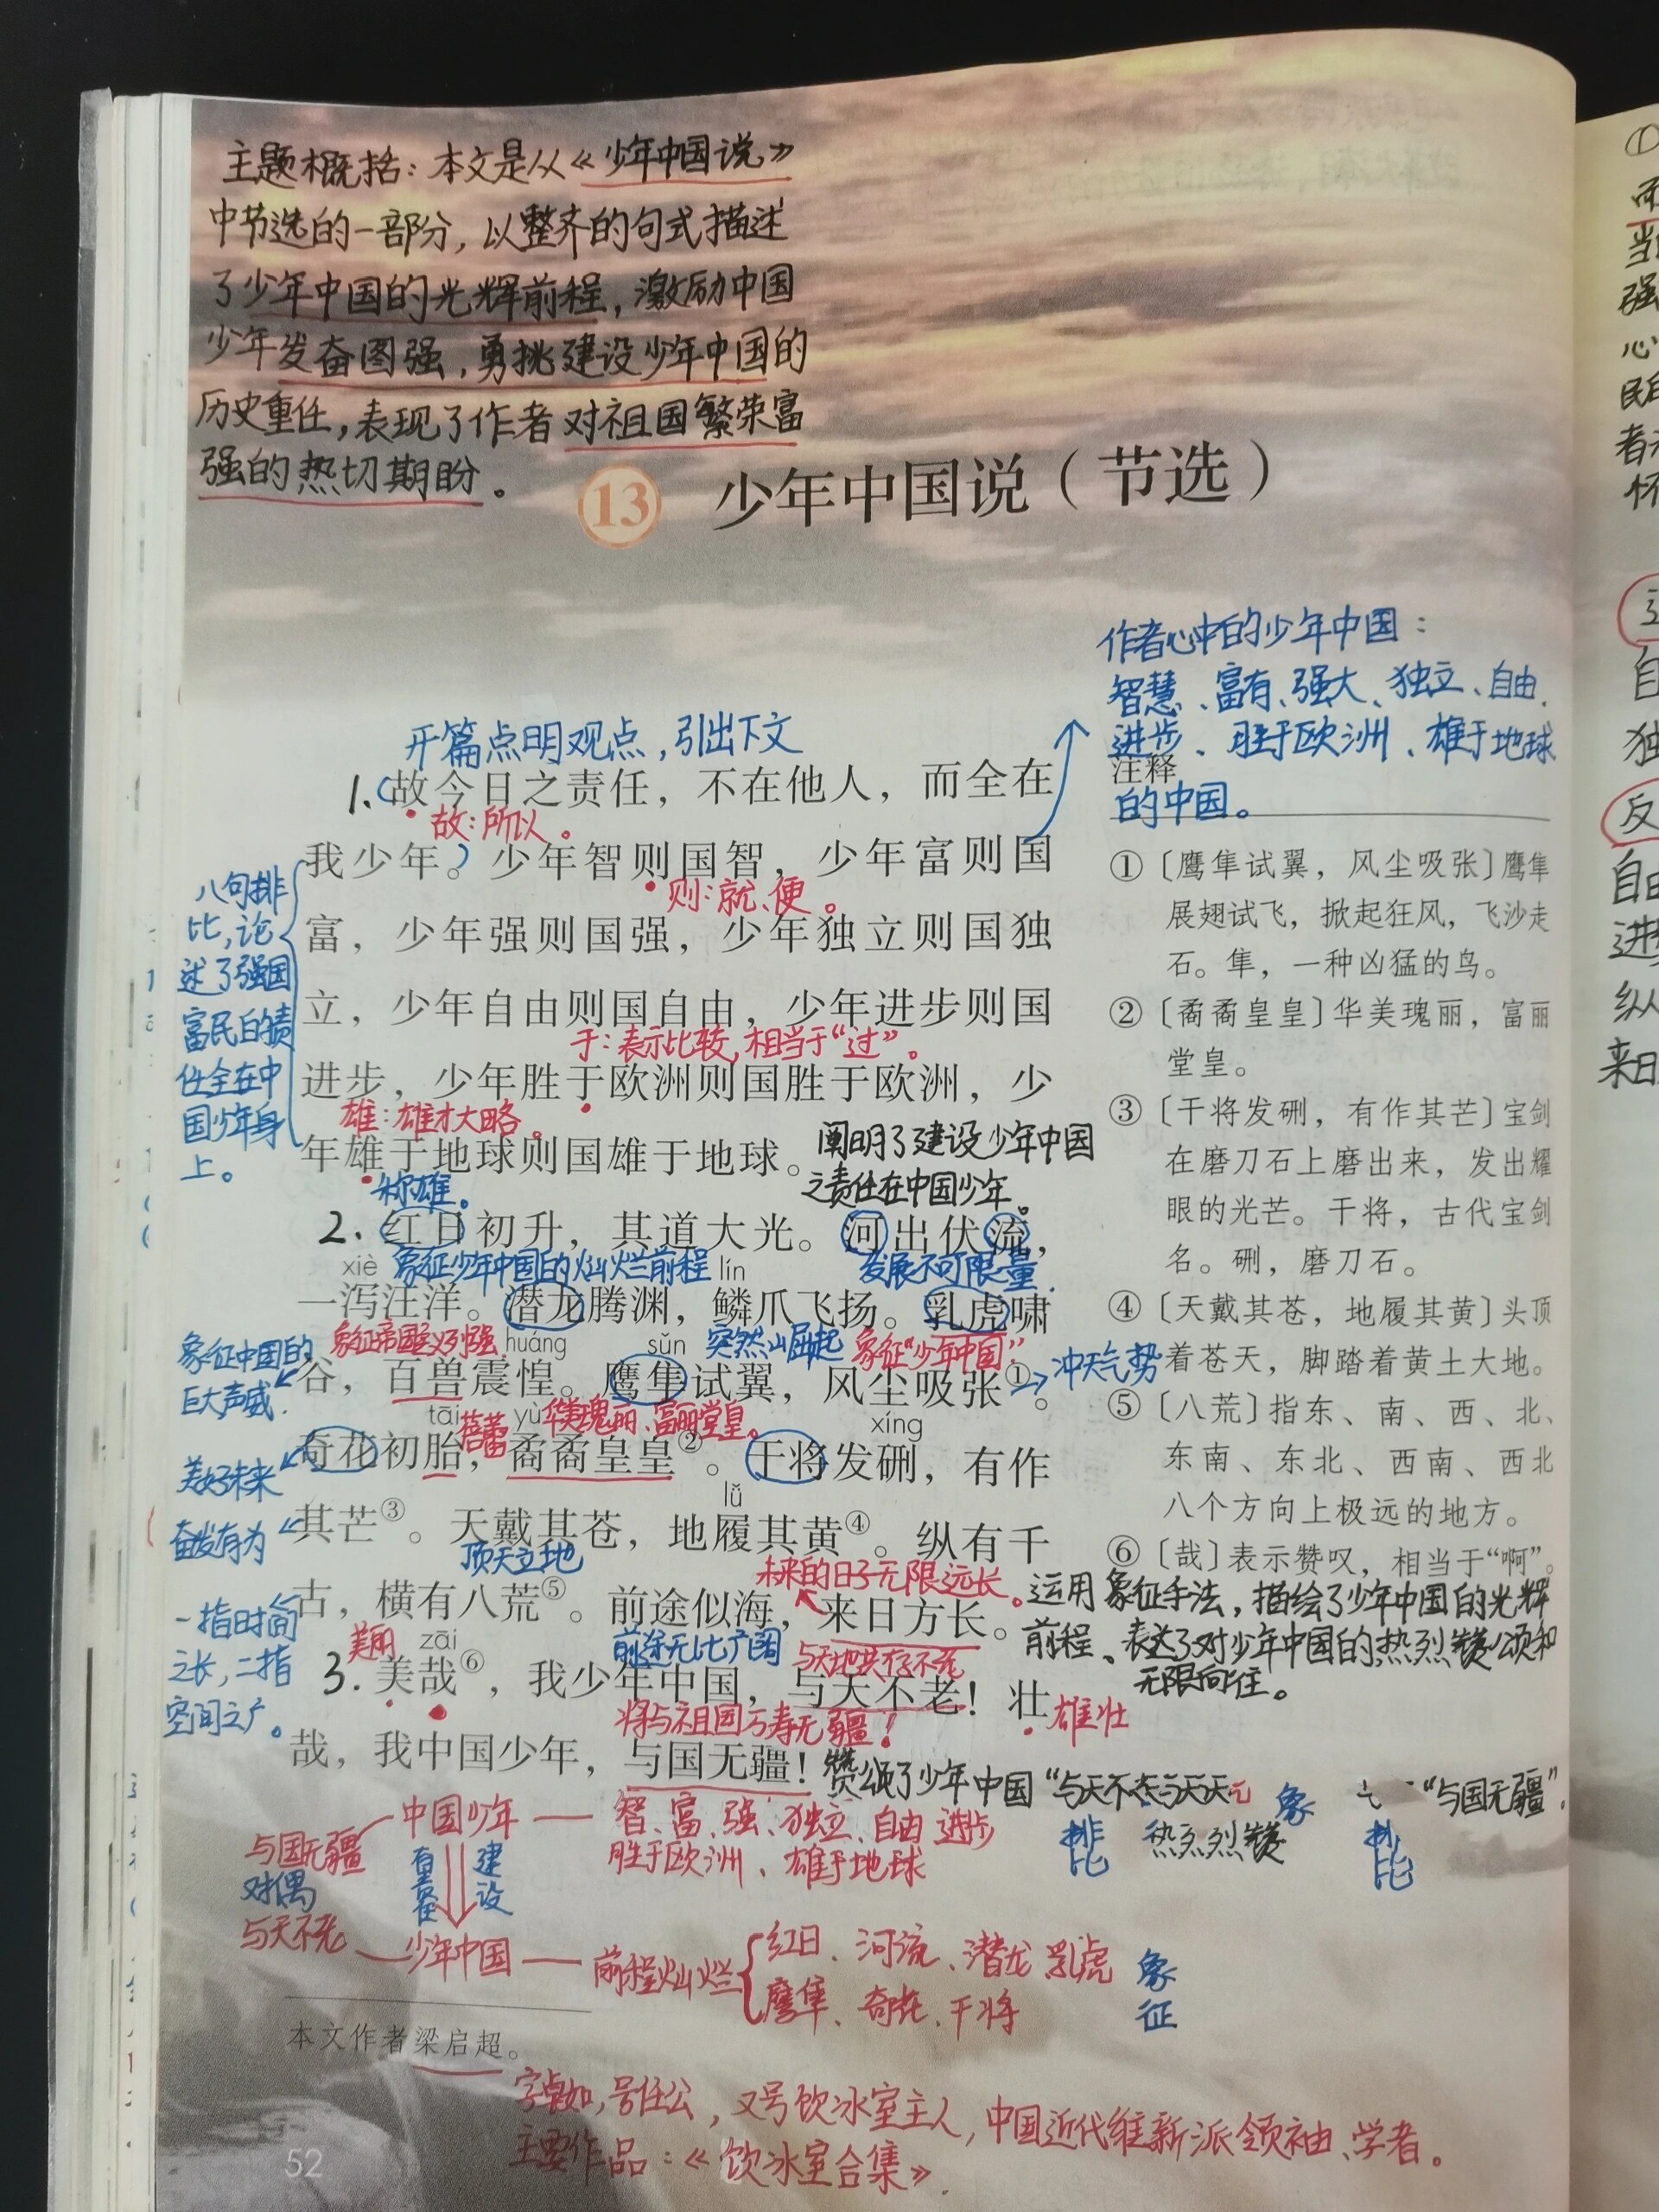 主题概括：本文是从《少年中国说》
中节选的一部分，以整齐的句式描述
了少年中国的光辉前程，激励中国
少年发奋图强，勇挑建设少年中国的
历史重任，表现了作者对祖国繁荣富
强的热切期盼。
13 少年中国说（节选）
作者心中的少年中国：
智慧、富有、强大、独立、自由、
进步、胜于欧洲、雄于地球
的中国。
开篇点明观点，引出下文
1.（故今日之责任，不在他人，而全在
故：所以。
我少年。）少年智则国智，少年富则国
则：就、便。
富，少年强则国强，少年独立则国独
立，少年自由则国自由，少年进步则国
于：表示比较，相当于“过”。
进步，少年胜于欧洲则国胜于欧洲，少
雄：雄才大略。
年雄于地球则国雄于地球。
称雄。
阐明了建设少年中国
之责任在中国少年。
八句排
比，论
述了强国
富民的责
任全在中
国少年身
上。
2.红日初升，其道大光。河出伏流，
xiè 象征少年中国的灿烂前程 lín 发展不可限量.
一泻汪洋。潜龙腾渊，鳞爪飞扬。乳虎啸
huáng sǔn 突然崛起 象征“少年中国”.
谷，百兽震惶。鹰隼试翼，风尘吸张①。
冲天气势
象征中国的
巨大声威.
tāi 蓓蕾 yù 华美瑰丽、富丽堂皇。 xíng
奇花初胎，矞矞皇皇②。干将发硎，有作
美好未来
lǚ
其芒③。天戴其苍，地履其黄④。纵有千
奋发有为
顶天立地
未来的日子无限远长。
古，横有八荒⑤。前途似海，来日方长。
前途无比广阔
一指时间
之长，二指
空间之广。
运用象征手法，描绘了少年中国的光辉
前程、表达了对少年中国的热烈赞颂和
无限向往。
美丽 zāi 与天地共存不老
3.美哉⑥，我少年中国，与天不老！壮
将与祖国万寿无疆！
雄壮
哉，我中国少年，与国无疆！
赞颂了少年中国“与天不老
“与国无疆”.
排比
热烈
象
排比
注释
①〔鹰隼试翼，风尘吸张〕鹰隼
展翅试飞，掀起狂风，飞沙走
石。隼，一种凶猛的鸟。
②〔矞矞皇皇〕华美瑰丽，富丽
堂皇。
③〔干将发硎，有作其芒〕宝剑
在磨刀石上磨出来，发出耀
眼的光芒。干将，古代宝剑
名。硎，磨刀石。
④〔天戴其苍，地履其黄〕头顶
着苍天，脚踏着黄土大地。
⑤〔八荒〕指东、南、西、北、
东南、东北、西南、西北
八个方向上极远的地方。
⑥〔哉〕表示赞叹，相当于“啊”。
中国少年——智、富、强、独立、自由 进步
胜于欧洲、雄于地球
与国无疆
对偶
与天不老
有责任
建设
少年中国——前程灿烂
红日、河流、潜龙 乳虎
鹰隼、奇花、干将
象征
本文作者梁启超。
字卓如，号任公，又号饮冰室主人，中国近代维新派领袖、学者。
主要作品：《饮冰室合集》.
52